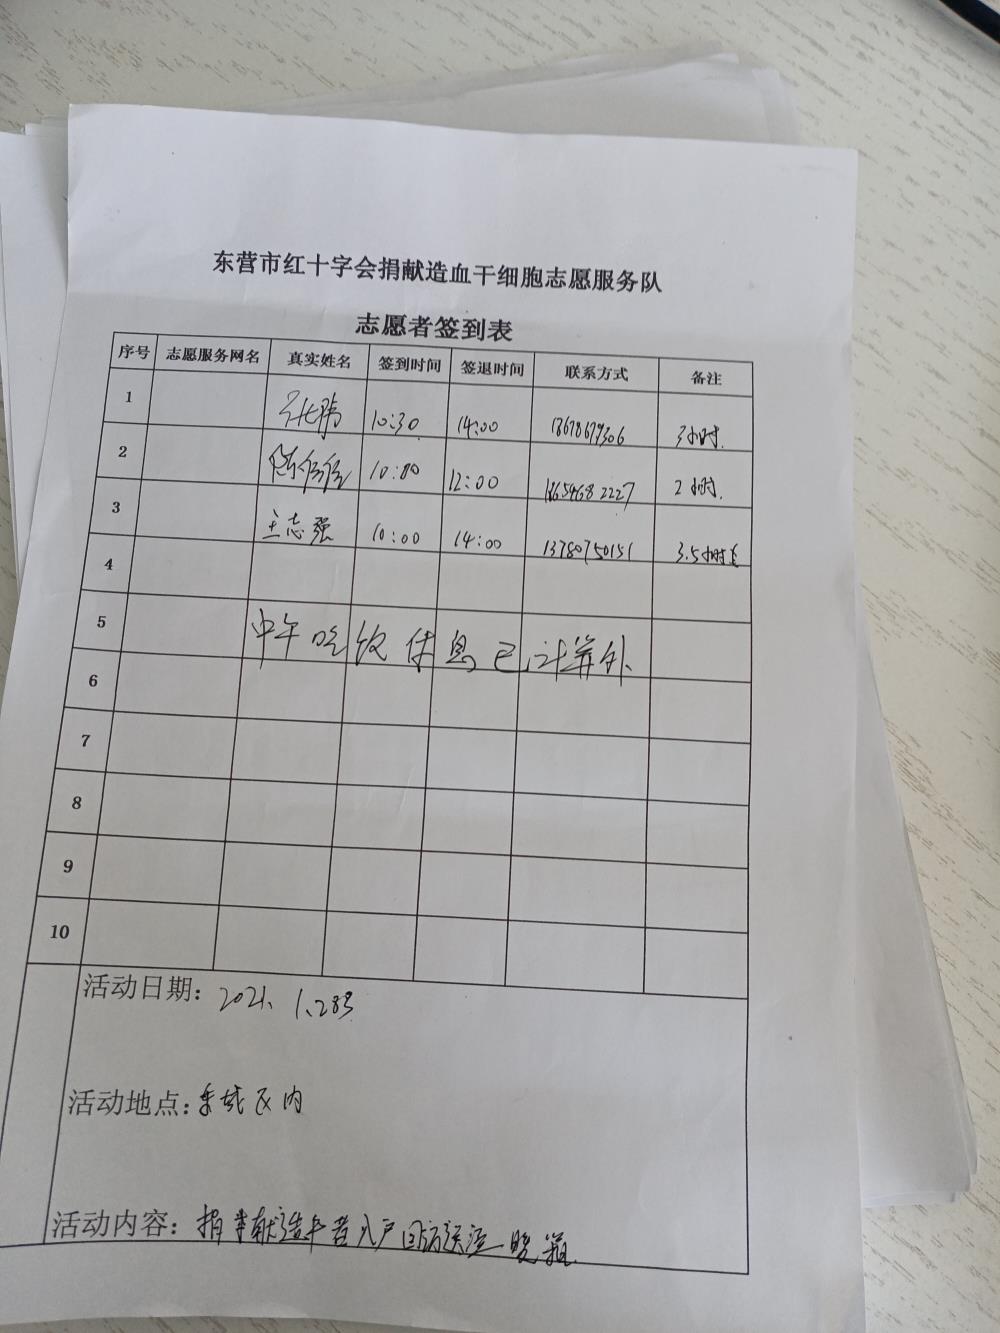 东营市红十字会捐献造血干细胞志愿服务队
志愿者签到表
序号 志愿服务网名 真实姓名 签到时间 签退时间 联系方式 备注
1 10:30 14:00 13678679306 3小时.
2 10:00 12:00 18654682227 2小时.
3 王志强 10:00 14:00 13780750151 3.5小时
4
5 中午吃饭休息已计算外
6
7
8
9
10
活动日期: 2021. 1.28日
活动地点: 东城区内
活动内容: 捐献造干者入户回访送温暖